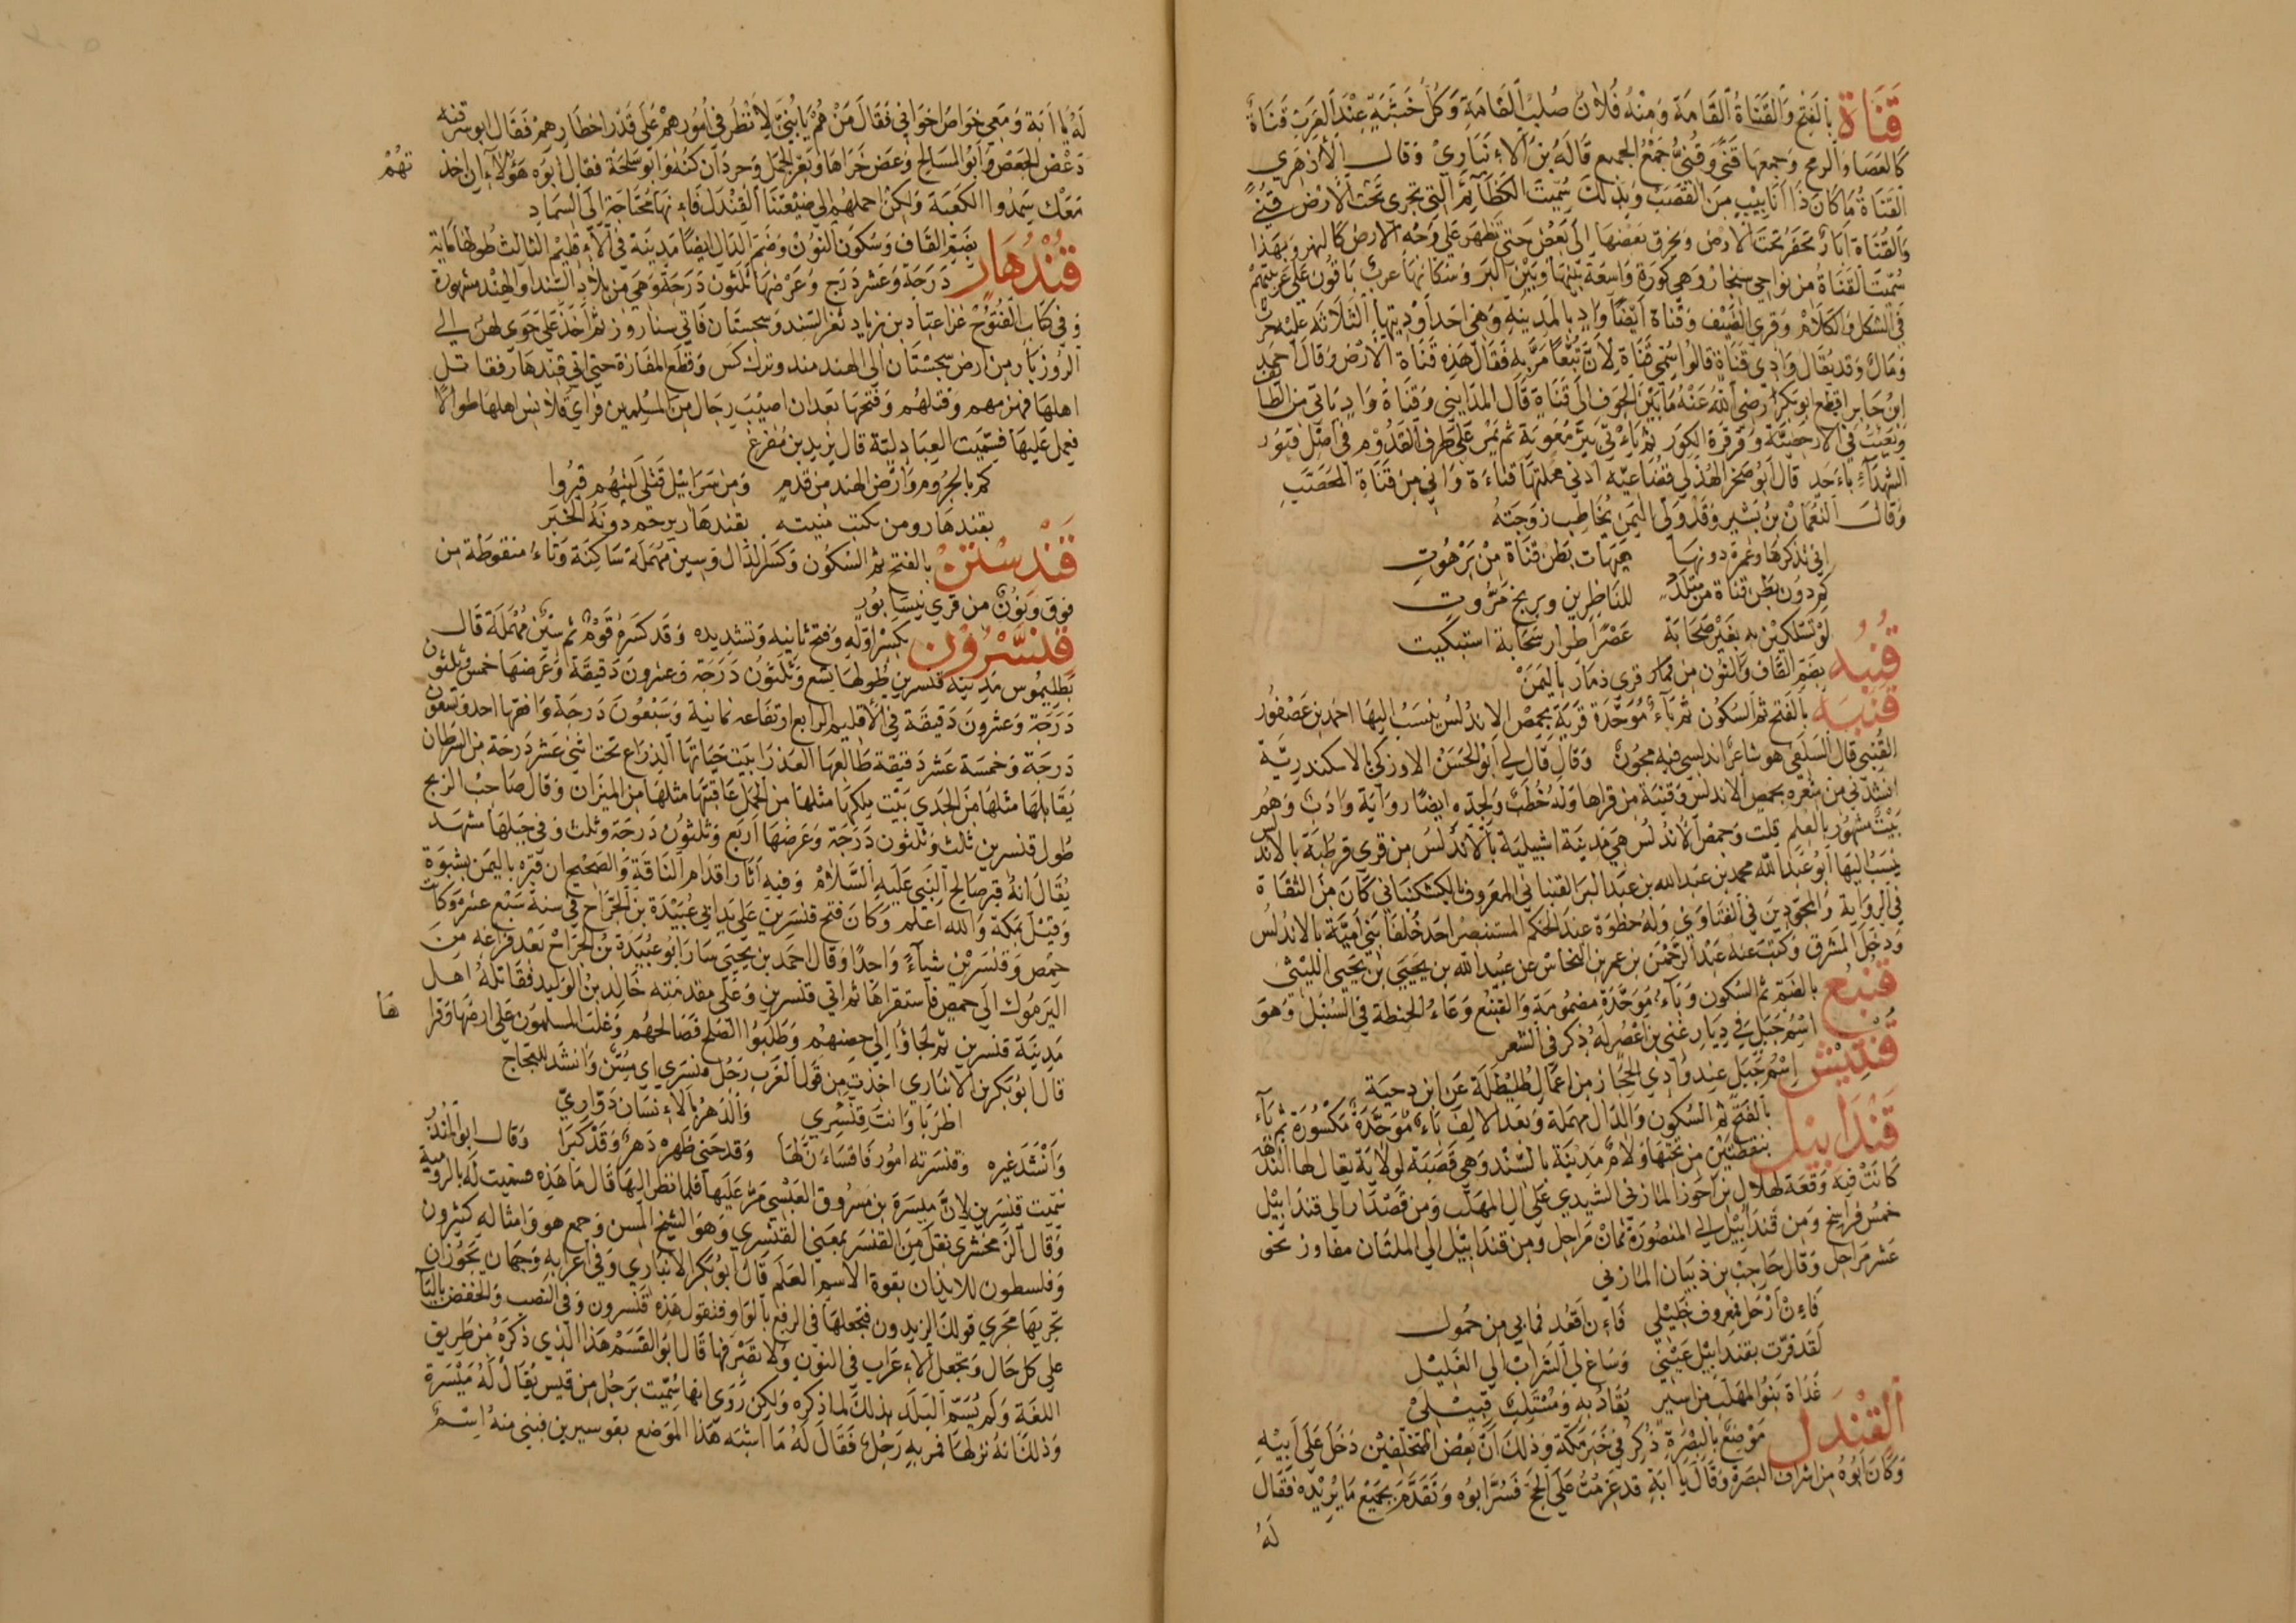 قَنَاة بالفتح والقناة القامة ومنه فلان صلب القامة وكل خشبة عند العرب قناة
كالعصا والرمح وجمعها قنى وقنى جمع الجمع قاله بن الانباري وقال الازهري
القناة ما كان ذا انابيب من القصب وبذلك سميت الكظائم التي تجري تحت الارض قنى
والقناة ابار تحفر تحت الارض ويخرق بعضها الى بعض حتى تظهر على وجه الارض كالنهر وبهذا
سميت القناة من نواحي سنجار وهي كورة واسعة بينها وبين البر وسكانها عرب باقون على عربيتهم
في الشكل والكلام وقري الضيف وقناة ايضا واد بالمدينة وهي احد اوديتها الثلاثة عليه حرث
ومال وقد يقال وادي قناة قالوا سمي قناة لان تبعا مر به فقال هذه قناة الارض وقال احمد
ابن جابر اقطع ابو بكر رضي الله عنه ما بين الجوف الى قناة قال المدايني وقناة واد ياتي من الطائف
ويصب في الارحضية وقرقرة الكدر ثم ياتي بئر معوية ثم يمر على طرف القدوم في اصل قبور
الشهداء باحد قال ابو صخر الهذلي قضاعيه ادنى محلتها قناة واني من قناة المحصب
وقال النعمان بن بشير وقد ولى اليمن يخاطب زوجته
اني تذكرها وغمرة دونها هيهات بطن قناة من برهوت
كم دون بطن قناة من متلدد للناظرين وبربخ مروت
لو تسلكين به بغير صحابة عصرا طوار سحابة استبكيت
قُنُبه بضم القاف والنون من قرى ذمار باليمن
قَنبَة بالفتح ثم السكون ثم باء موحدة قرية بحمص الاندلس ينسب اليها احمد بن عصفور
القنبي قال السلفي هو شاعر اندلسي فيه مجون وقال قال لي ابو الحسن الاوزكي بالاسكندرية
انشدني من شعره بحمص الاندلس وقنبة من قراها وله خطب ولجده ايضا رواية وادب وهم
بيت مشهور بالعلم قلت وحمص الاندلس هي مدينة اشبيلية بالاندلس من قرى قرطبة بالاندلس
ينسب اليها ابو عبد الله محمد بن عبد الله بن عبد البر القنباني المعروف بالكشكنياني كان من الثقاة
في الرواية والمجودين في الفتاوي وله حظوة عند الحكم المستنصر احد خلفا بني امية بالاندلس
ودخل المشرق وكتب عنه عبد الرحمن بن عمر بن النحاس عن عبيد الله بن يحيى بن يحيى الليثي
قُنبُع بالضم ثم السكون وباء موحدة مضمومة والقنبع وعاء الحنطة في السنبل وهو
اسم جبل في ديار غني بن اعصر له ذكر في الشعر
قنتيش اسم جبل عند وادي الحجاز من اعمال طليطلة عن ابن دحية
قَندَابيل بالفتح ثم السكون والدال مهملة وبعد الالف باء موحدة مكسورة ثم باء
بنقطتين من تحتها ولام مدينة بالسند وهي قصبة لولاية يقال لها الندهة
كانت فيه وقعة لهلال بن احوز المازني الشيدي على ال المهلب ومن قصدار الى قندابيل
خمس فراسخ ومن قندابيل الى المنصورة ثمان مراحل ومن قندابيل الى الملتان مفاوز نحو
عشر مراحل وقال حاجب بن ذبيان المازني
فان ارحل فمعروف خليلي فان اقعد فما بي من خمول
لقد قرت بقندابيل عيني وساغ لي الشراب الى الغليل
غداة بنوا المهلب من اسير يقاد به ومستلب قتيل
القندل موضع بالبصرة ذكر في خبر مكة وذلك ان بعض المتخلفين دخل على ابيه
وكان ابوه من اشراف البصرة وقال يا ابة قد عزمت على الحج فسر ابوه وتقدم بجميع ما يريده فقال
له
له يا ابة ومعي خواص اخواني فقال من هم يا بني لانظر في امورهم على قدر اخطارهم فقال ابو سرقنه
وعض الجعص وابو المسالح وعض خراها وبعر الجمل وحردان كنه وابو سلحة فقال ابوه هؤلاء ان اخذتهم
معك سمدوا الكعبة ولكن احملهم الى ضيعتنا القندل فانها محتاجة الى السماد
قُنْدُهَار بضم القاف وسكون النون وضم الدال ايضا مدينة في الاقليم الثالث طولها ماية
درجة وعشر درج وعرضها ثلثون درجة وهي من بلاد السند او الهند مشهورة
وفي كتاب الفتوح غزا عباد بن زياد ثغر السند وسجستان فاتى سناروز ثم اخذ على جوى لهن الى
الروزبار من ارض سجستان الى الهند مند ونزل كس وقطع المفازة حتى اتى قندهار فقاتل
اهلها فهزمهم وقتلهم وفتحها بعد ان اصيب رجال من المسلمين فراى قلانس اهلها طوالا
فعمل عليها فسميت العبادية قال يزيد بن مفرغ
كم بالجروم وارض الهند من قدم ومن سرابيل قتلى ليتهم قبروا
بقندهار ومن تكتب منيته بقندهار يرجم دونه الخبر
قَنْدِسْتن بالفتح ثم السكون وكسر الدال وسين مهملة ساكنة وتاء منقوطة من
فوق ونون من قرى نيسابور
قِنَّسْرُون بكسر اوله وفتح ثانيه وتشديده وقد كسره قوم ثم سين مهملة قال
بطليموس مدينة قنسرين طولها تسع وثلثون درجة وعشرون دقيقة وعرضها خمس وثلثون
درجة وعشرون دقيقة في الاقليم الرابع ارتفاعه ثمانية وسبعون درجة وافقها احد وتسعون
درجة وخمسة عشر دقيقة طالعها العذرا بيت حياتها الذراع تحت اثني عشر درجة من السرطان
يقابلها مثلها من الجدي بيت ملكها مثلها من الحمل عاقبتها مثلها من الميزان وقال صاحب الزيج
طول قنسرين ثلث وثلثون درجة وعرضها اربع وثلثون درجة وثلث وفي جبلها مشهد
يقال انه قبر صالح النبي عليه السلام وفيه اثار اقدام الناقة والصحيح ان قبره باليمن بشبوة
وقيل بمكة والله اعلم وكان فتح قنسرين على يد ابي عبيدة بن الجراح في سنة سبع عشر وكانت
حمص وقنسرين شياء واحدا وقال احمد بن يحيى سار ابو عبيدة بن الجراح بعد فراغه من
اليرموك الى حمص فاستقراها ثم اتى قنسرين وعلى مقدمته خالد بن الوليد فقاتله اهل
مدينة قنسرين ثم لجاؤا الى حصنهم وطلبوا الصلح فصالحهم وغلب المسلمون على ارضها وقراها
قال ابو بكر بن الانباري اخذت من قول العرب رجل قنسري اي مسن وانشد للعجاج
اطربا وانت قنسري والدهر بالانسان دواري
وانشد غيره وقنسرته امور فاقساءن لها وقد حنى ظهره دهر وقد كبرا وقال ابو المنذر
سميت قنسرين لان ميسرة بن مسروق العبسي مر عليها فلما نظر اليها قال ما هذه فسميت له بالرومية
وقال الزمخشري نقل من القنسر بمعنى القنسري وهو الشيخ المسن وجمع هو وامثاله كثيرون
وفلسطون للايذان بقوة الاسم العلم قال ابو بكر الانباري وفي اعرابه وجهان يجوز ان
تجريها مجرى قولك الزيدون فتجعلها في الرفع بالواو فنقول هذه قنسرون وفي النصب والخفض باليا
على كل حال وتجعل الاعراب في النون ولا تصرفها قال ابو القسم هذا الذي ذكره من طريق
اللغة ولم يسم البلد بذلك لما ذكره ولكن روي انها سميت برجل من قيس يقال له ميسرة
وذلك انه نزلها فمر به رجل فقال له ما اشبه هذا الموضع بقو سيرين فبني منه اسم